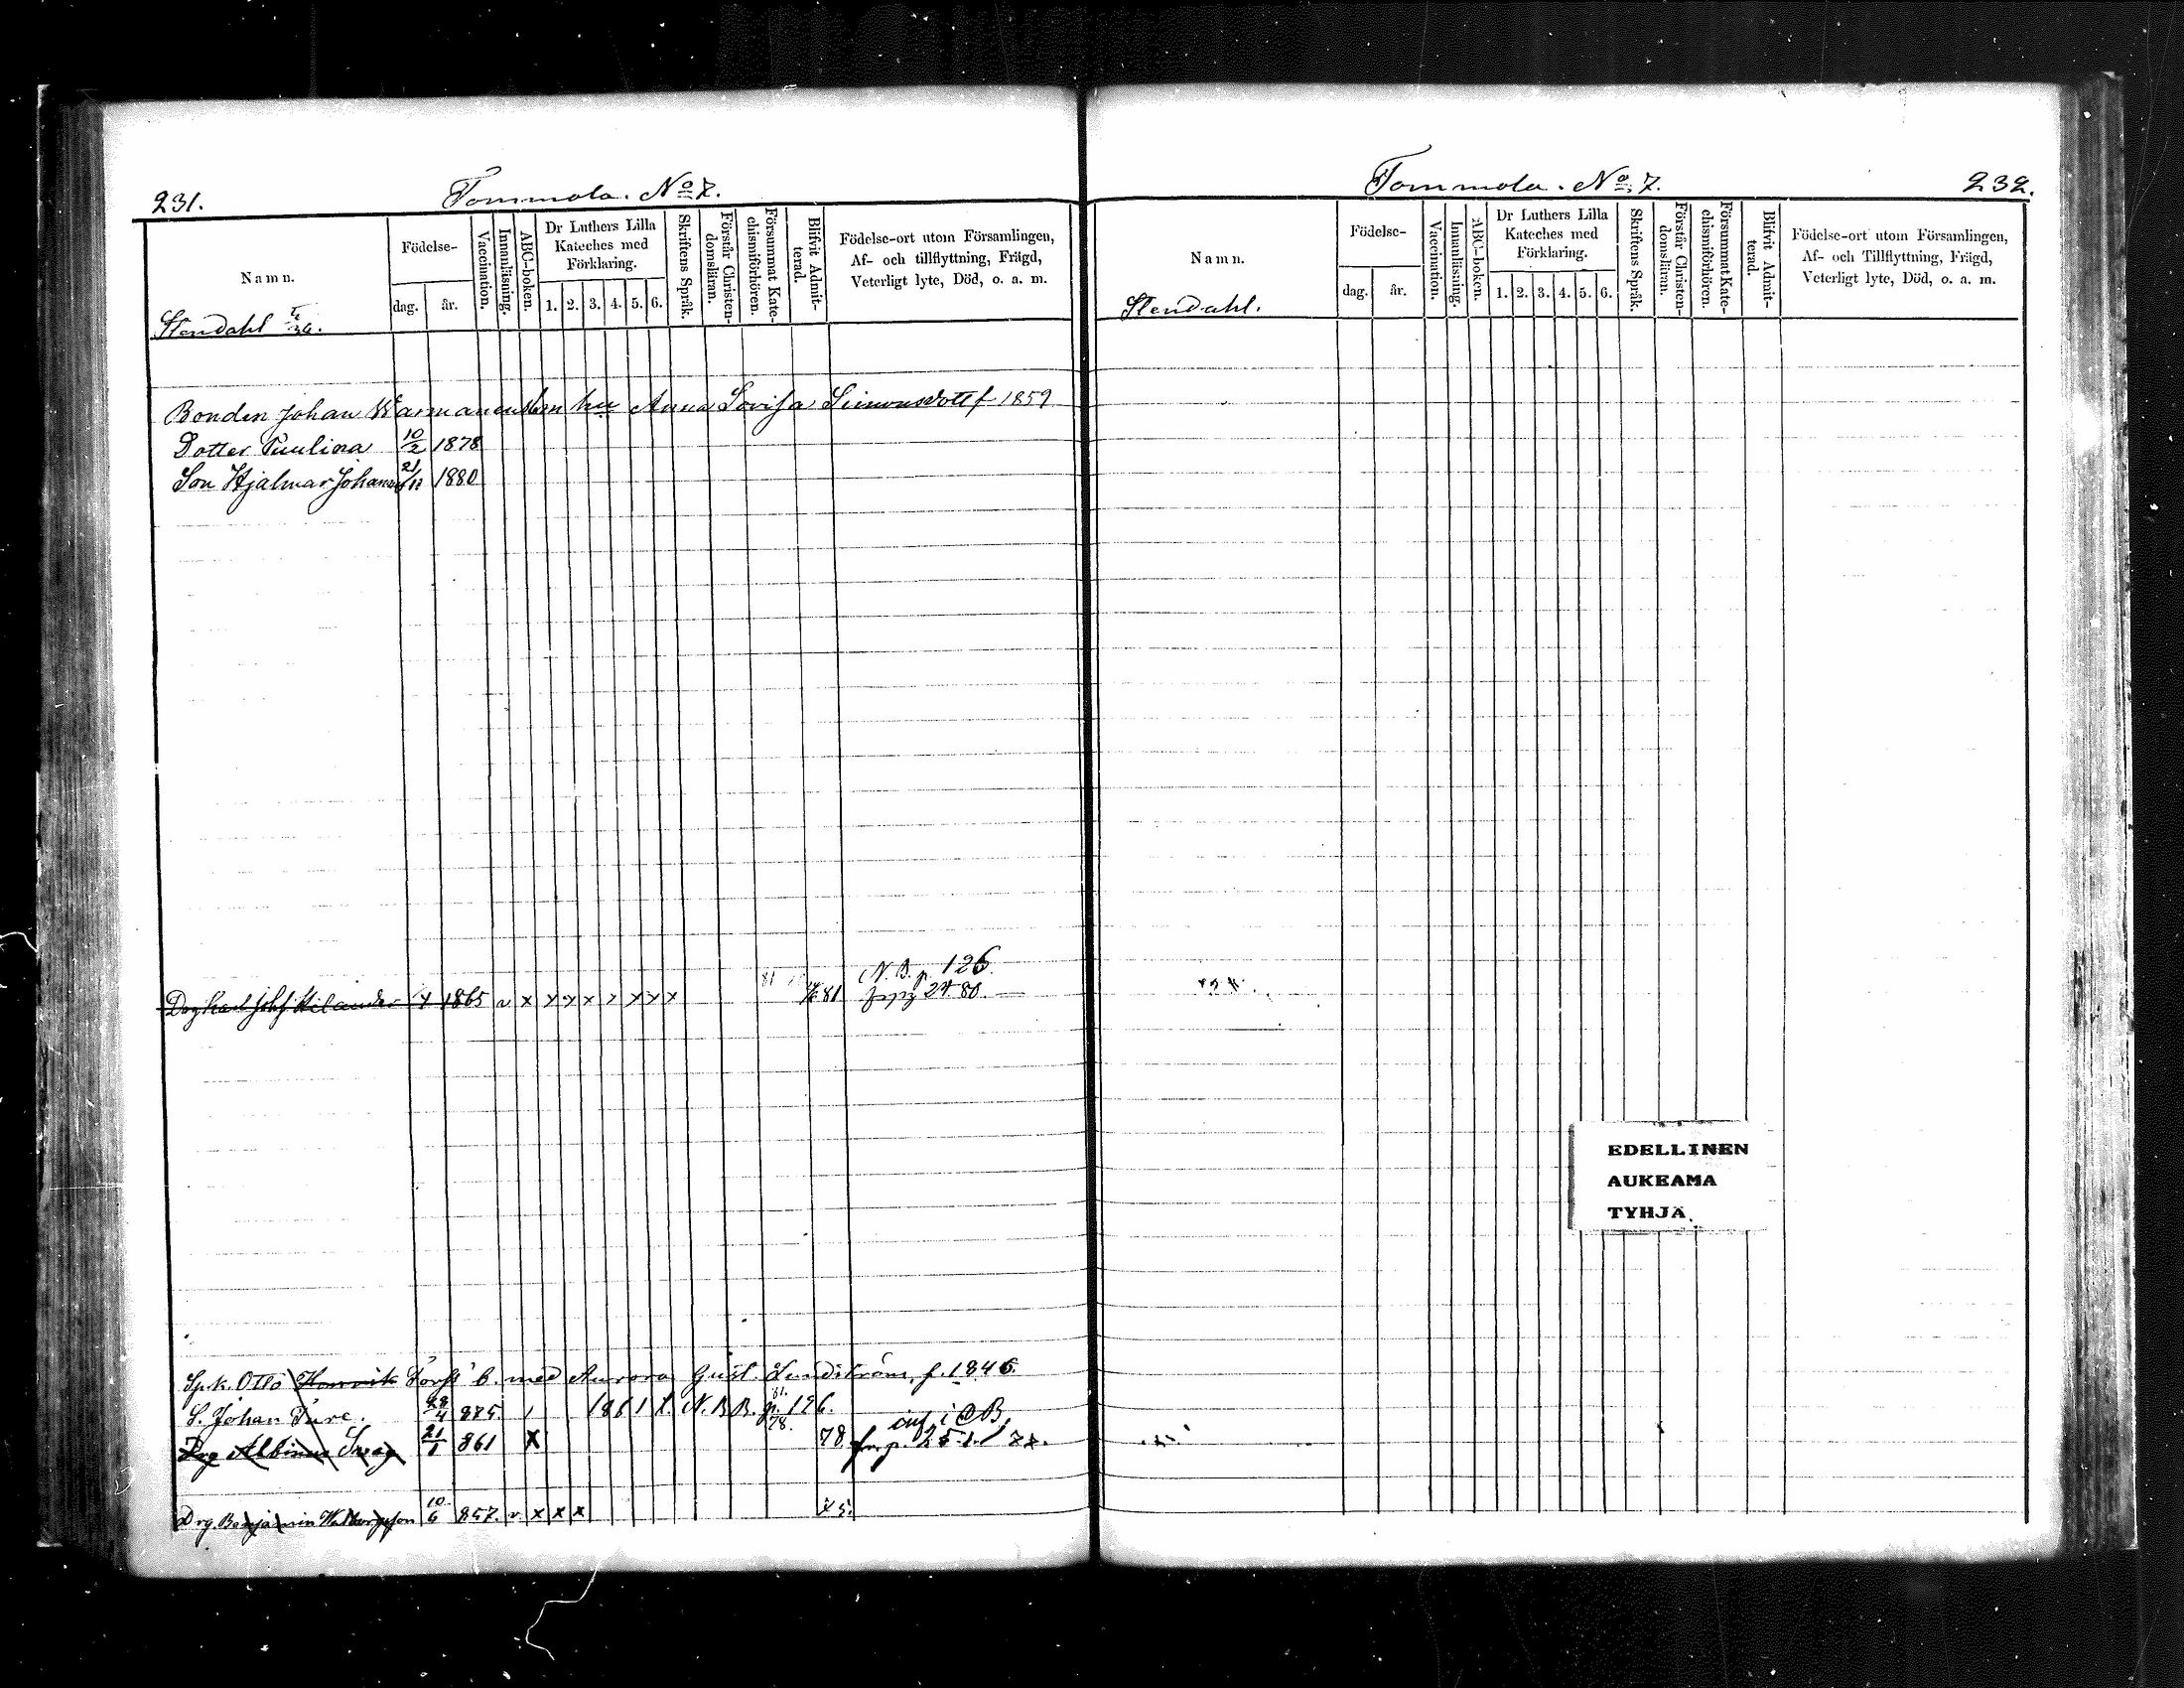 231.
Tommola. No 7.
Namn.
Födelse-
dag.
år.
Vaccination.
Innanläsning.
ABC-boken.
Dr Luthers Lilla
Kateches med
Förklaring.
1. 2. 3. 4. 5. 6.
Skriftens Språk.
Förstår Christen-
domsläran.
Försummat Kate-
chismiförhören.
Blifvit Admit-
terad.
Födelse-ort utom Församlingen,
Af- och tillflyttning, Frägd,
Veterligt lyte, Död, o. a. m.
Stendahl
Bonden Johan Anna Lovisa Simonsdott f 1859
Dotter Paulina 10/2 1878
Son Hjalmar Johannes 1880
N. B. p. 126.
1865 v x x x x x x x x 81 80.
Sp.k. Otto b. med Aurora Gust. Lundström, f. 1846.
S. Johan Ture. 885. 1861 X. N. B. B. p. 126.
78.
Drg Albinus 21/1 861 X 78 fr. p. 251.
Drg. Benjamin 10/6 857. v. x x x
Tommola. No 7.
232.
Namn.
Födelse-
dag.
år.
Vaccination.
Innanläsning.
ABC-boken.
Dr Luthers Lilla
Kateches med
Förklaring.
1. 2. 3. 4. 5. 6.
Skriftens Språk.
Förstår Christen-
domsläran.
Försummat Kate-
chismiförhören.
Blifvit Admit-
terad.
Födelse-ort utom Församlingen,
Af- och Tillflyttning, Frägd,
Veterligt lyte, Död, o. a. m.
Stendahl.
EDELLINEN
AUKEAMA
TYHJÄ.